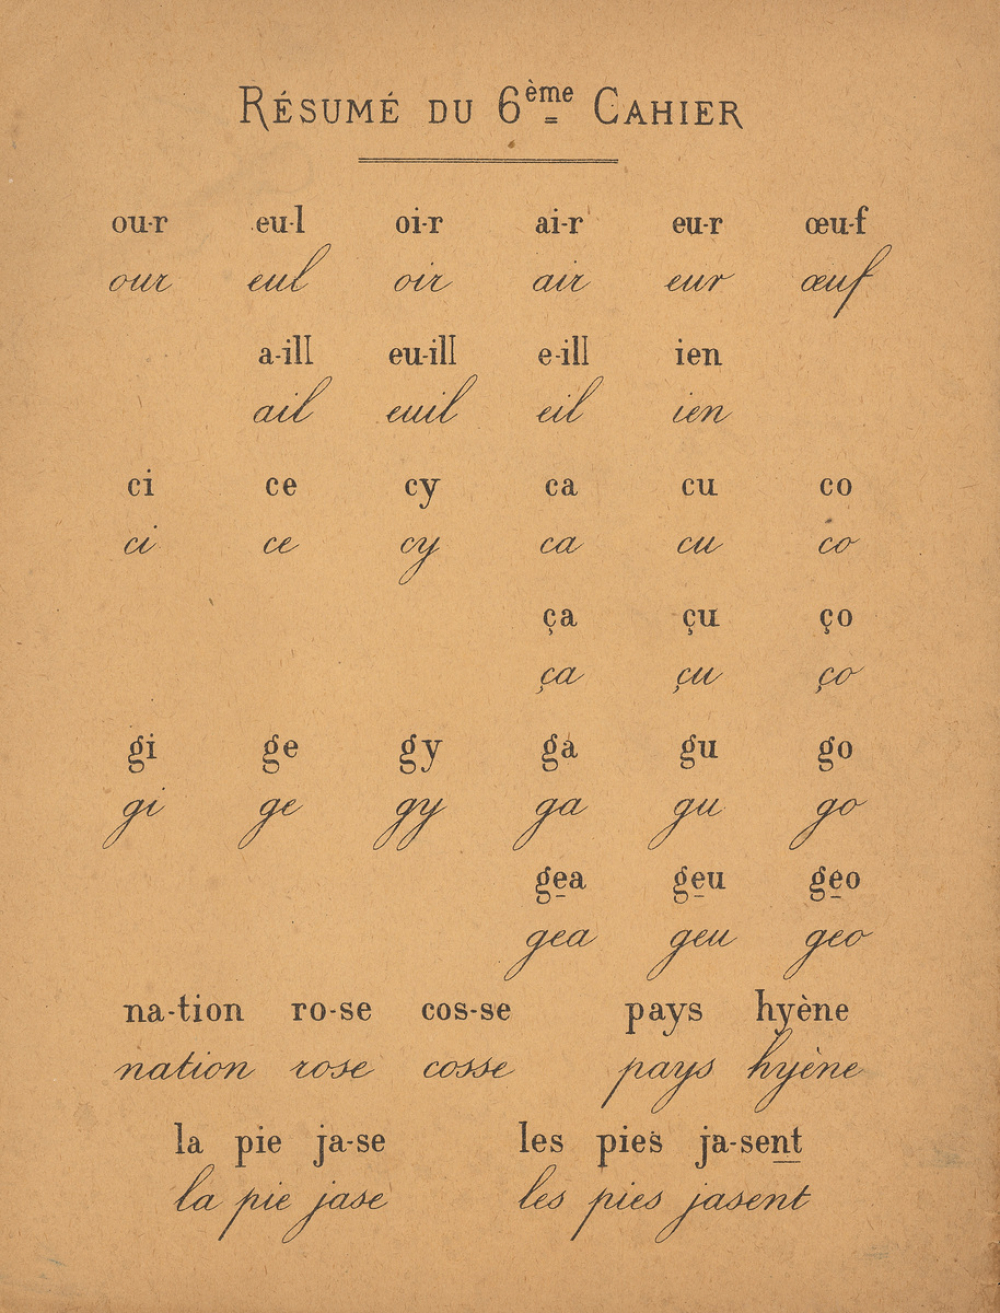 RÉSUMÉ DU 6ème CAHIER
ou-r eu-l oi-r ai-r eu-r œu-f
our eul oir air eur œuf
a-ill eu-ill e-ill ien
ail euil eil ien
ci ce cy ca cu co
ci ce cy ca cu co
ça çu ço
ça çu ço
gi ge gy ga gu go
gi ge gy ga gu go
gea geu geo
gea geu geo
na-tion ro-se cos-se pays hyène
nation rose cosse pays hyène
la pie ja-se les pies ja-sent
la pie jase les pies jasent